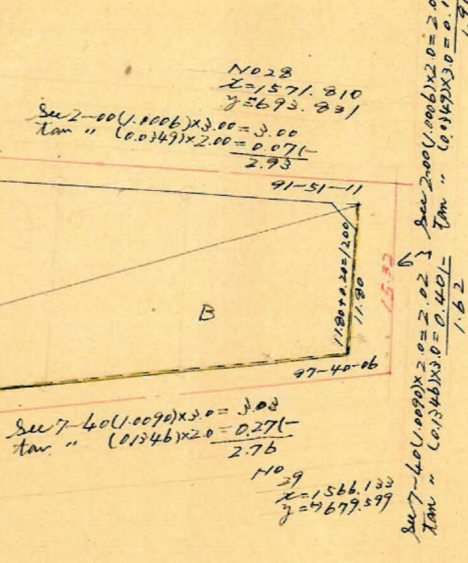 N028
x=1571.810
y=693.831
Sec 2-00(1.0006)×3.00=3.00
tan " (0.0349)×2.00=0.071-
2.93
91-51-11
11.80+0.20=1200
11.80
15.32
B
97-40-06
Sec 7-40(1.0090)×3.0=3.03
tan " (0.1346)×2.0=0.271-
2.76
NO
29
x=1566.133
y=679.599
Sec 2-00(1.0006)×2.0=2.0
tan " (0.0349)×3.0=0.1
1.9
Sec 7-40(1.0090)×2.0=2.02
tan " (0.1346)×3.0=0.401-
1.62